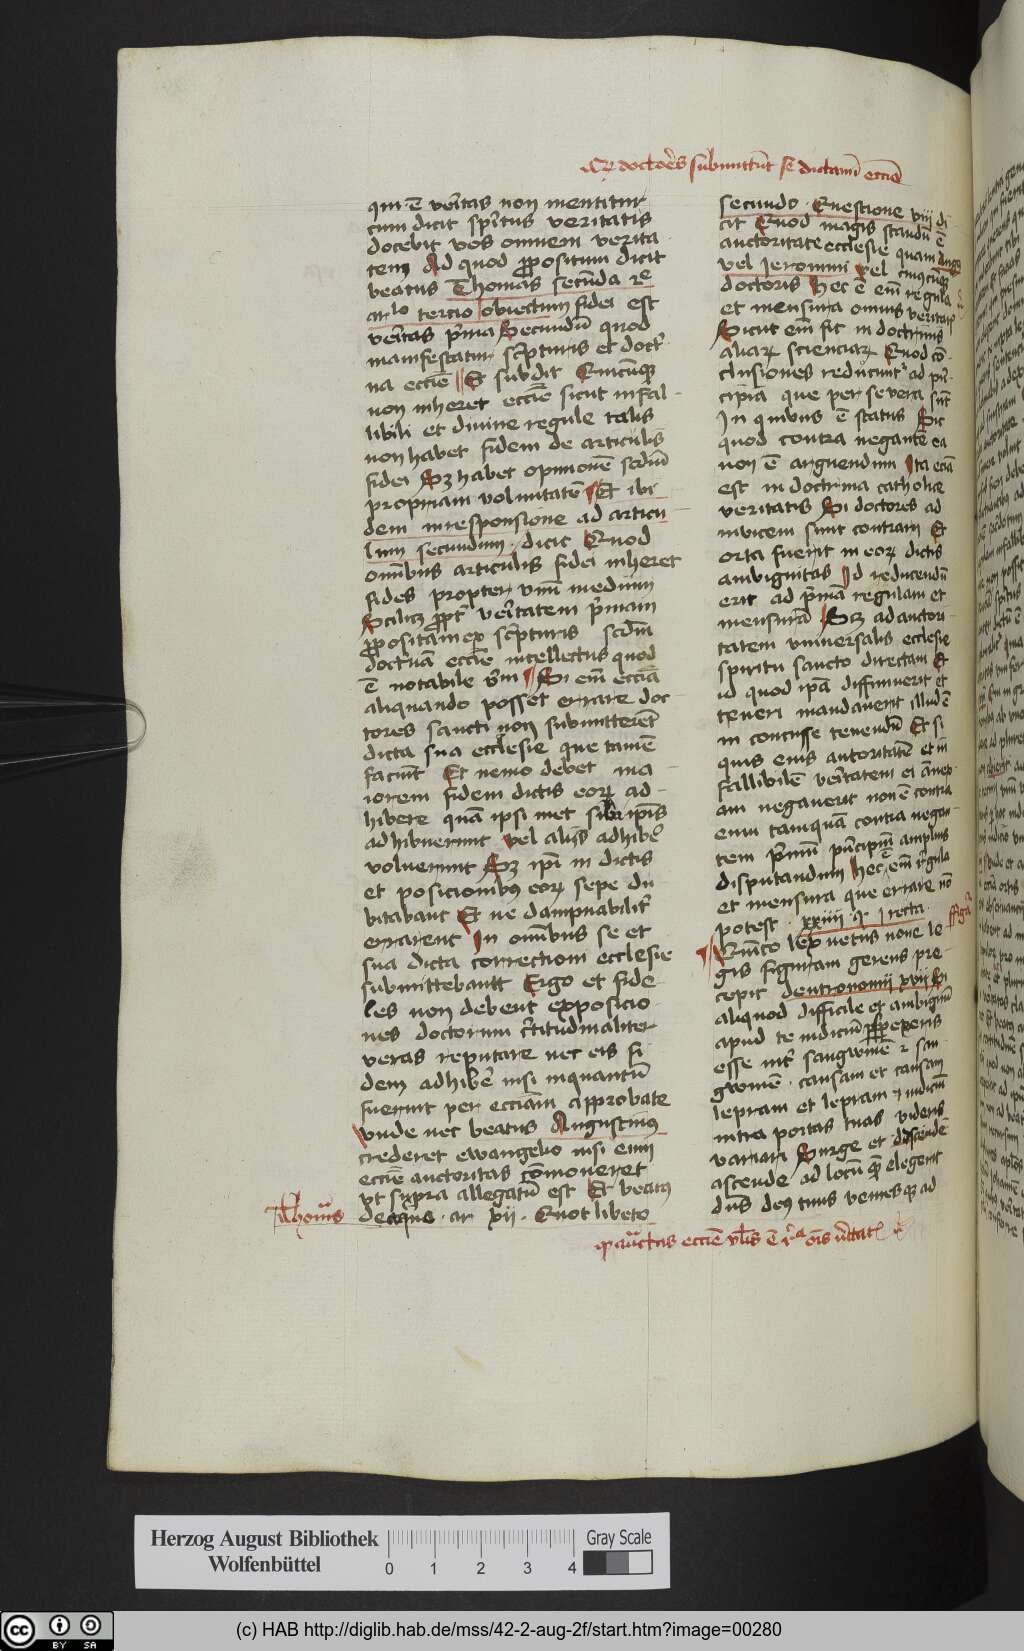 Qz doctores submittunt se dictamini eccie
qui ē veritas non mentitur
cum dicit spiritus veritatis
docebit vos omnem verita
tem Ad quod propositum dicit
beatus Thomas secunda 2e
arlo tercio obiectum fidei est
veritas prima Secundum quod
manifestatur scripturis et doctri
na eccie Et subdit Quicunque
non inheret eccie sicut infal
libili et divine regule talis
non habet fidem de articulis
fidei Sz habet opinionē scdm
propriam voluntatē Et ibi
dem in responsione ad articu
lum secundum dicit Quod
omnibus articulis fidei inheret
fides propter unum medium
Scilicz propter veritatem primam
propositam ex scripturis scdm
doctrinā eccie intellectus quod
ē notabile verbum Si enim eccia
aliquando posset errare doc
tores sancti non submitterent
dicta sua ecclesie que tamē
faciunt Et nemo debet ma
iorem fidem dictis eorum ad
hibere quā ipsi met sibi ipsis
adhibuerunt vel aliis adhibere
voluerunt Sz ipsi in dictis
et posicionibus eorum sepe du
bitabant Et ne dampnabiliter
errarent In omnibus se et
sua dicta correctioni ecclesie
submittebantt Ergo et fide
les non debent exposicio
nes doctorum certitudinaliter
veras reputare nec eis fi
dem adhibere nisi inquantū
fuerint per ecciam approbate
Unde nec beatus Augustinus
crederet ewangelio nisi eum
eccie auctoritas cōmoneret
vt supra allegatū est Et beatus
Thomas
de aquo ar xii Quotlibeto
secundo Questione viii di
cit Quod magis standū ē
auctoritate ecclesie quam Augu
vel Jeronimi vel cuiuscunque
doctoris Hec ē enim regula
et mensura omnis veritatis
Sicut enim fit in doctrinis
aliarum scienciarum Quod cō
clusiones reducuntur ad prin
cipia que per se vera sunt
In quibus ē status Sic
quod contra negante ea
non ē arguendum Ita eciā
est in doctrina catholice
veritatis Si doctores ad
invicem sunt contrarii Et
orta fuerit in eorum dictis
ambiguitas Id reducendū
erit ad primā regulam et
mensurā Sz ad auctori
tatem universalis ecclesie
spiritu sancto directam Et
id quod ipsa diffiniuerit et
teneri mandauerit illud ē
in concusse tenendū Et si
quis eius autoritatē et in
fallibilē veritatem ei annex
am negauerit non ē contra
eum tamquā contra negan
tem primum principium amplius
disputandum Hec ē enim regula
et mensura que errare nō
potest xxiiii q i recta
Quinto lex vetus noue le
figura
gis figuram gerens pre
cepit deutronomii xvii Si
aliquod difficile et ambiguum
apud te iudicium perspexeris
esse inter sangwinē 2 san
gwinē causam et causam
lepram et lepram 2 iudicium
intra portas tuas videris
variari Surge et discende
ascende ad locū quē elegerit
dns deus tuus veniesque ad